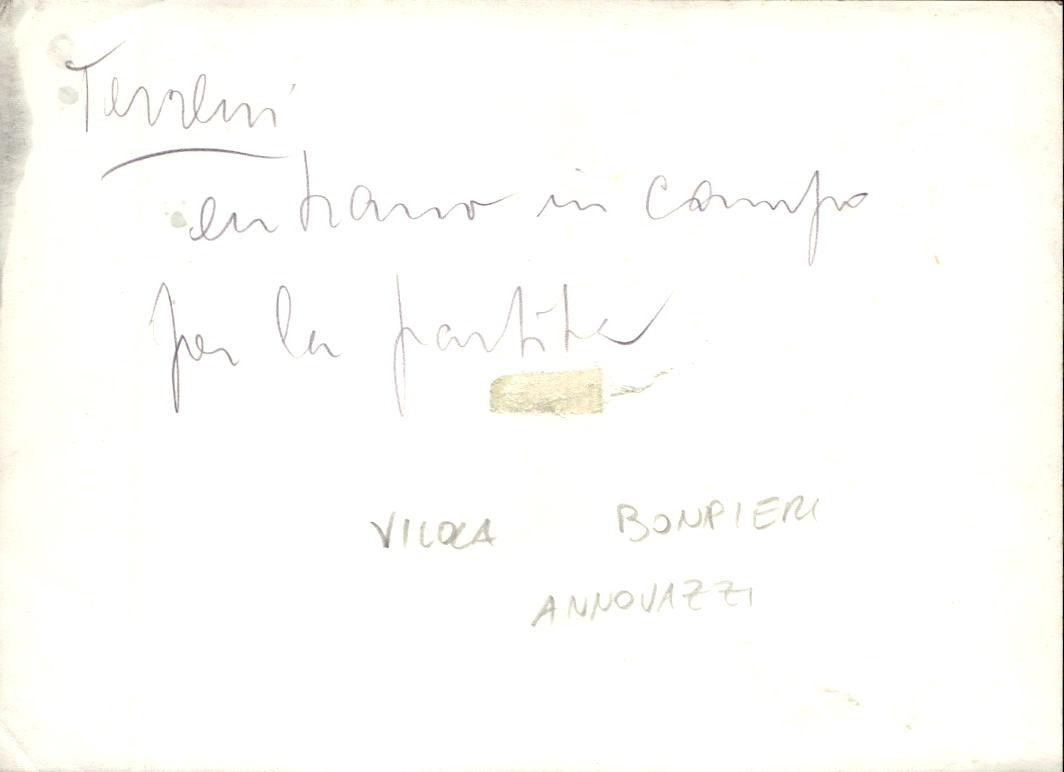 Terreni
entrano in campo
per la partita
VIOLA BONPIERI
ANNOVAZZI